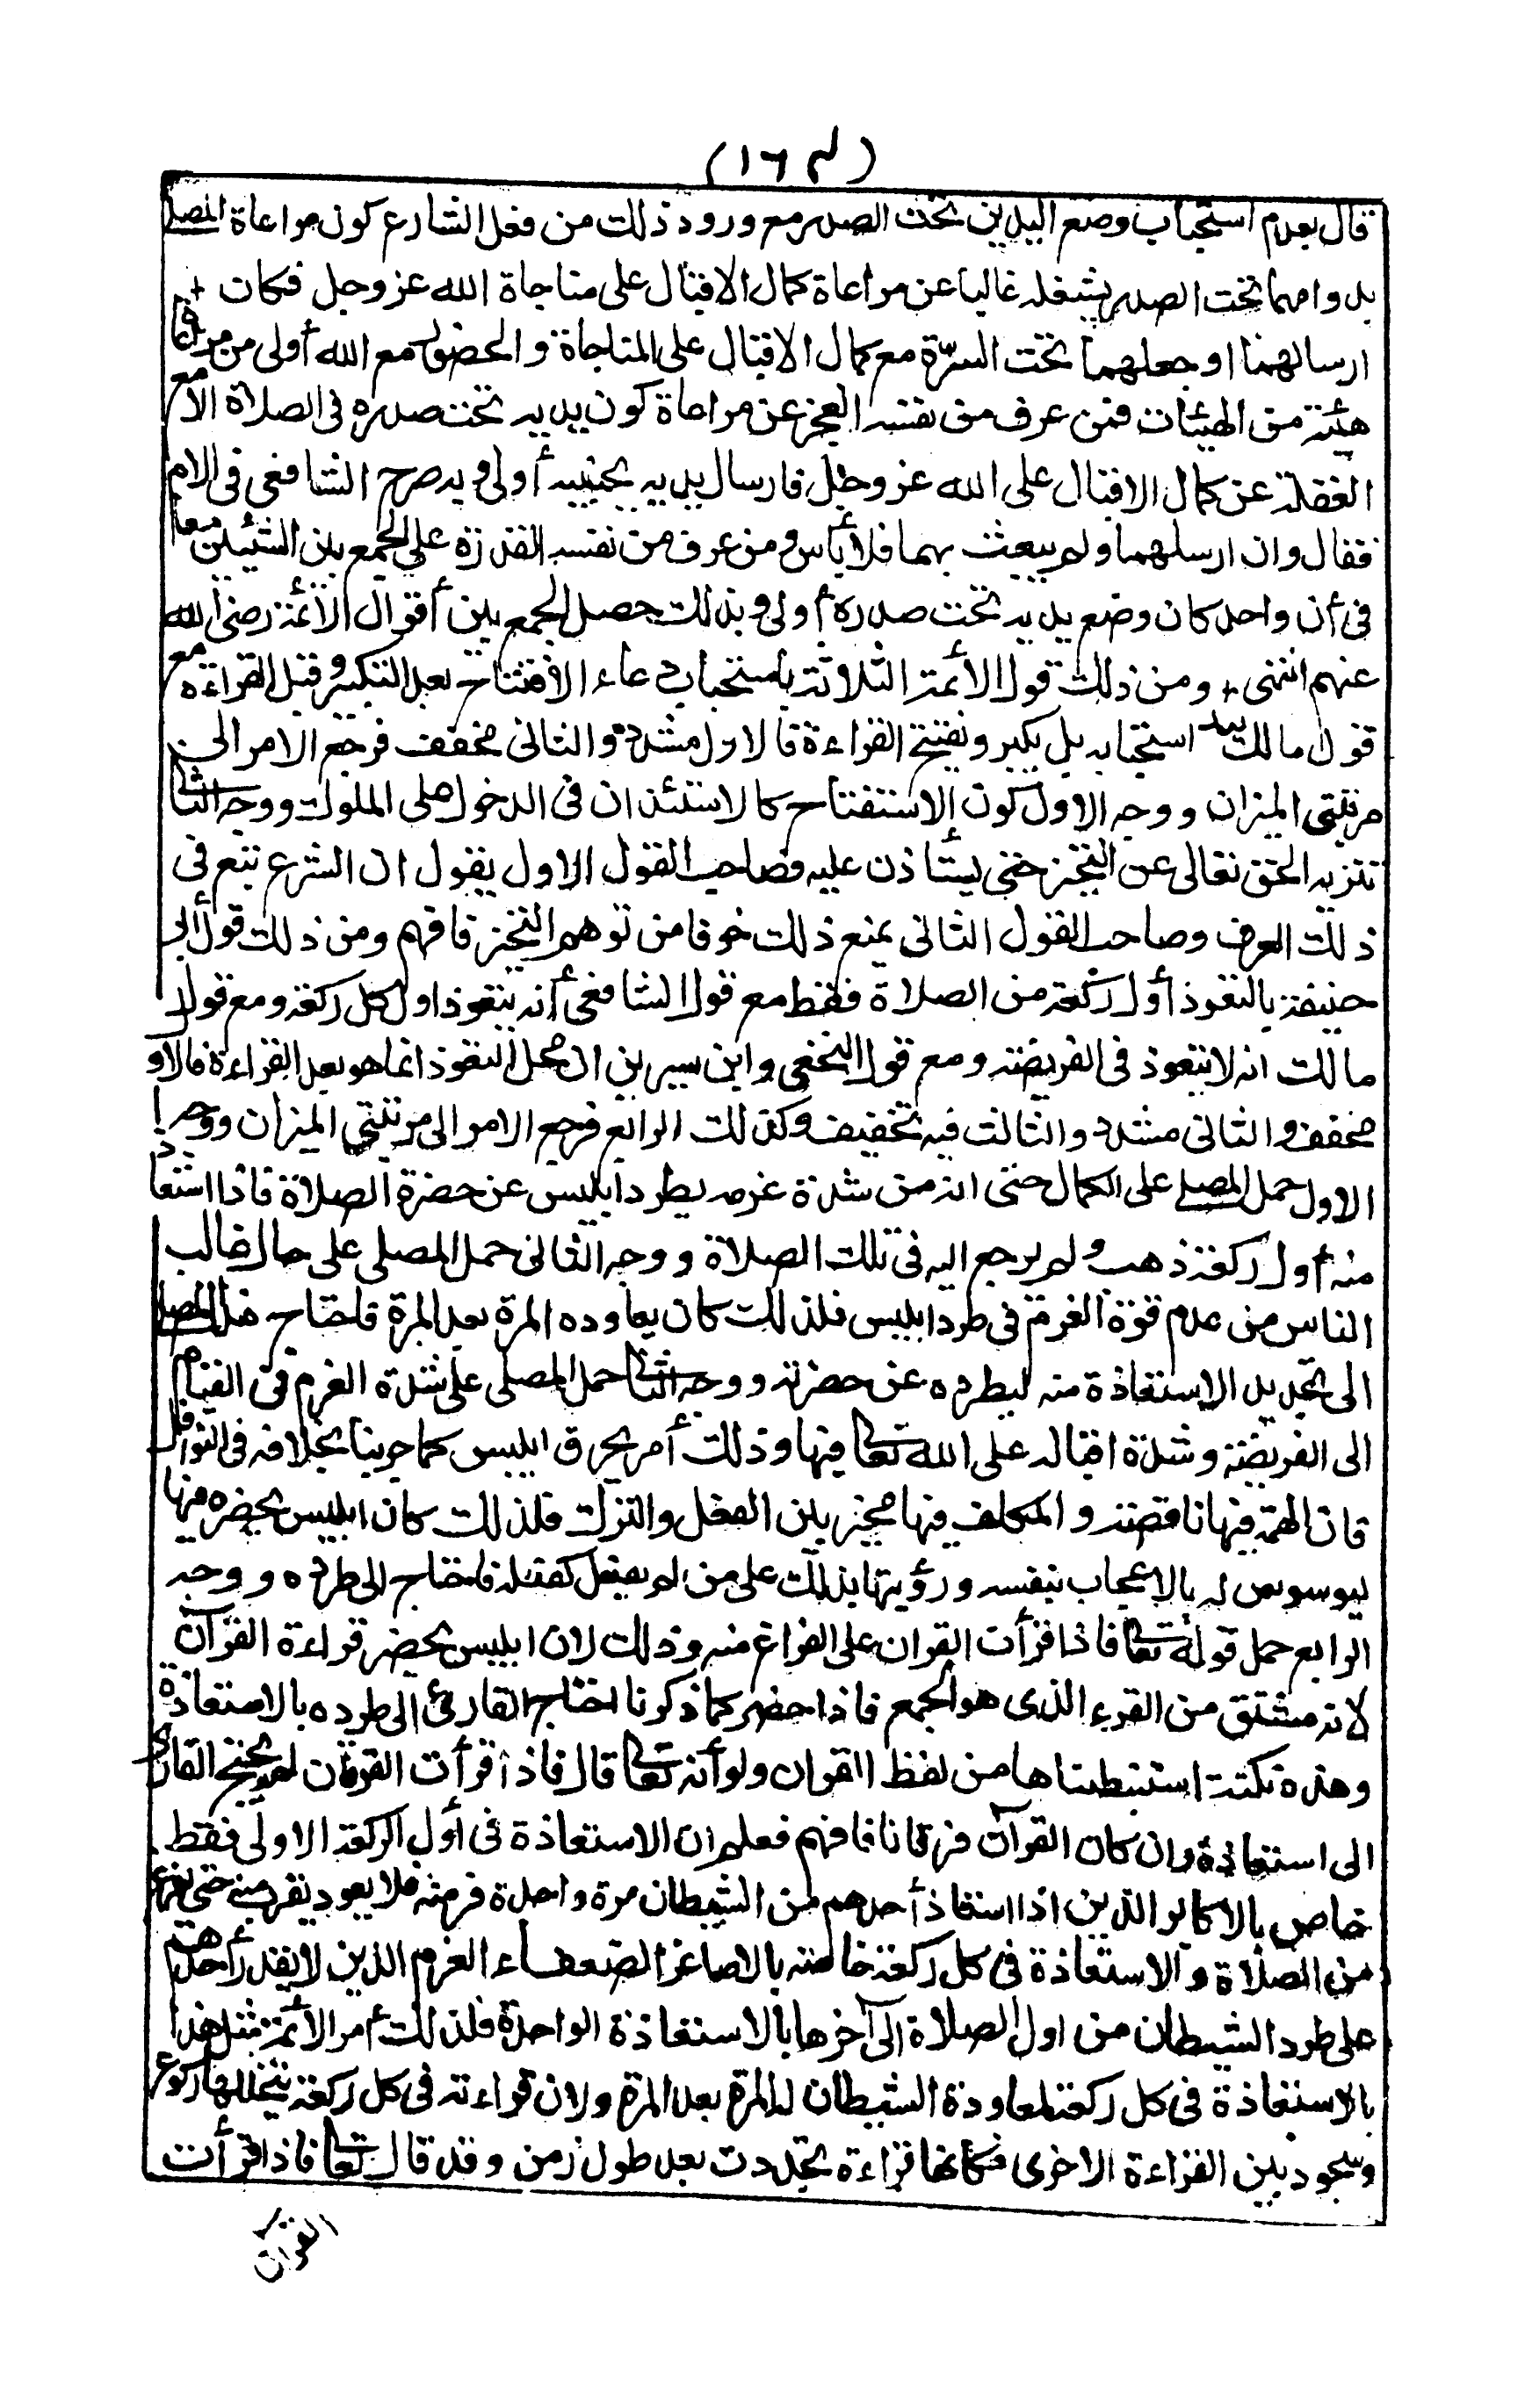 (١٦٣)
قال بعدم استحباب وضع اليدين تحت الصدر مع ورود ذلك من فعل الشارع كون مراعاة المصلى
بدوامهما تحت الصدر يشغله غالبا عن مراعاة كمال الاقبال على مناجاة الله عز وجل فكان
ارسالهما او جعلهما تحت السرّة مع كمال الاقبال على المناجاة والحضور مع الله أولى من مراعاة
هيئة من الهيئات فمن عرف من نفسه العجز عن مراعاة كون يديه تحت صدره فى الصلاة الا مع
الغفلة عن كمال الاقبال على الله عز وجل فارسال يديه بجنبيه أولى وبه صرح الشافعى فى الام
فقال وان ارسلهما ولم يعبث بهما فلا بأس ومن عرف من نفسه القدرة على الجمع بين الشيئين معا
فى أن واحد كان وضع يديه تحت صدره أولى وبذلك حصل الجمع بين أقوال الأئمة رضى الله
عنهم انتهى ومن ذلك قول الأئمة الثلاثة باستحباب دعاء الافتتاح بعد التكبير وقبل القراءة مع
قول مالك بعدم استحبابه بل يكبر ويفتتح القراءة فالاول مشدد والثانى مخفف فرجع الامر الى
مرتبتى الميزان ووجه الاول كون الاستفتاح كالاستئذان فى الدخول على الملوك ووجه الثانى
تنزيه الحق تعالى عن التحيز حتى يستأذن عليه فصاحب القول الاول يقول ان الشرع تبع فى
ذلك العرف وصاحب القول الثانى يمنع ذلك خوفا من توهم التحيز فافهم ومن ذلك قول أبى
حنيفة بالتعوذ أول ركعة من الصلاة فقط مع قول الشافعى أنه يتعوذ اول كل ركعة ومع قول
مالك انه لا يتعوذ فى الفريضة ومع قول النخعى وابن سيرين ان محل التعوذ انما هو بعد القراءة فالاول
مخفف والثانى مشدد والثالث فيه تخفيف وكذلك الرابع فرجع الامر الى مرتبتى الميزان ووجه
الاول حمل المصلى على الكمال حتى انه من شدة عزمه يطرد ابليس عن حضرة الصلاة فاذا استعاذ
منه أول ركعة ذهب ولم يرجع اليه فى تلك الصلاة ووجه الثانى حمل المصلى على حال غالب
الناس من عدم قوة العزم فى طرد ابليس فلذلك كان يعاوده المرة بعد المرة فاحتاج هذا المصلى
الى تجديد الاستعاذة منه ليطرده عن حضرته ووجه الثالث حمل المصلى على شدة العزم فى القيام
الى الفريضة وشدة اقباله على الله تعالى فيها وذلك أمر يحرق ابليس كما جربنا بخلافه فى النوافل
فان الهمة فيها ناقصة والمكلف فيها مخير بين الفعل والترك فلذلك كان ابليس يحضره فيها
ليوسوس له بالاعجاب بنفسه ورؤيتها بذلك على من لم يفعل كفعله فاحتاج الى طرده ووجه
الرابع حمل قوله تعالى فاذا قرأت القران على الفراغ منه وذلك لان ابليس يحضر قراءة القرآن
لانه مشتق من القرء الذى هو الجمع فاذا حضر كما ذكرنا احتاج القارئ الى طرده بالاستعاذة
وهذه نكتة استنبطناها من لفظ القوان ولو أنه تعالى قال فاذا قرأت الفرقان لم يحتج القارى
الى استعاذة وان كان القرآن فرقانا فافهم فعلم ان الاستعاذة فى أول الركعة الاولى فقط
خاص بالاكابر الذين اذا استعاذ أحدهم من الشيطان مرة واحدة فر منه فلا يعود يقرب منه حتى يفرغ
من الصلاة والاستعاذة فى كل ركعة خاصة بالاصاغر الضعفاء العزم الذين لا يقدر أحدهم
على طرد الشيطان من اول الصلاة الى آخرها بالاستعاذة الواحدة فلذلك أمر الأئمة مثل هذا
بالاستعاذة فى كل ركعة لمعاودة الشيطان له المرة بعد المرة ولان قراءته فى كل ركعة يتخللها ركوع
وسجود بين القراءة الاخرى فكانها قراءة تجددت بعد طول زمن وقد قال تعالى فاذا قرأت
القرآن